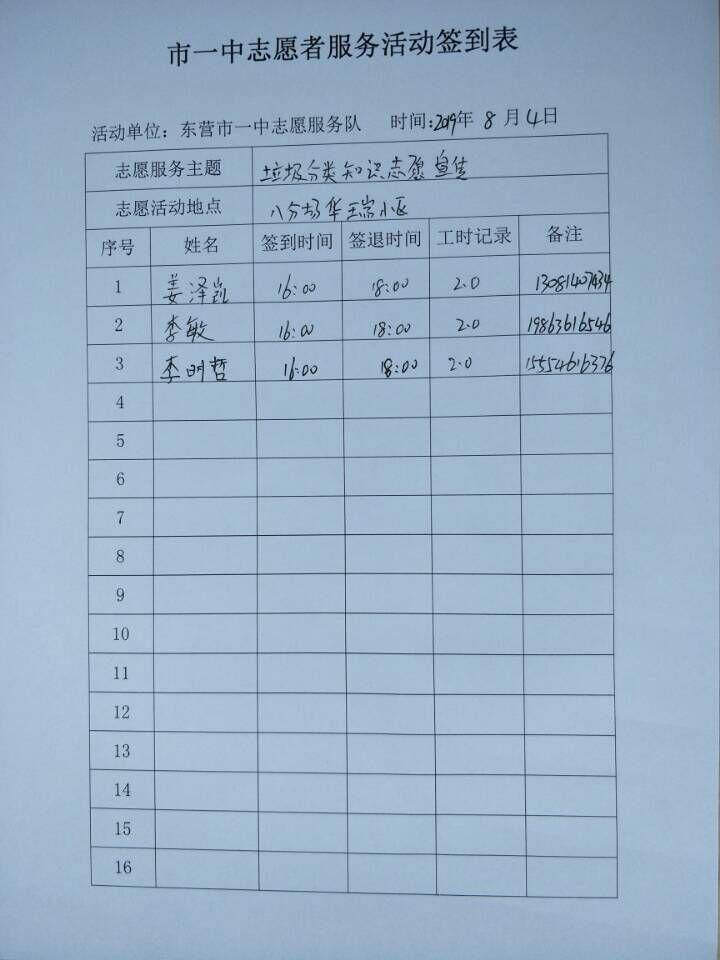 市一中志愿者服务活动签到表
活动单位：东营市一中志愿服务队 时间：2019年 8 月 4 日
志愿服务主题 垃圾分类知识志愿宣传
志愿活动地点 八分场华瑞小区
序号 姓名 签到时间 签退时间 工时记录 备注
1 姜泽凯 16:00 18:00 2.0
2 李敏 16:00 18:00 2.0 19863616546
3 李明哲 16:00 18:00 2.0 15554616376
4
5
6
7
8
9
10
11
12
13
14
15
16